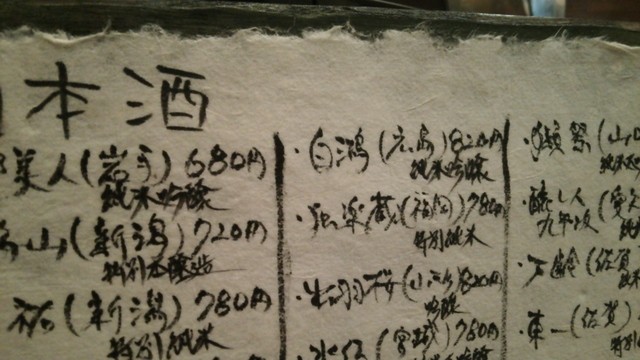 本酒
美人(岩手)680円
純米吟醸
山(新潟)720円
特別本醸造
祐(新潟)780円
特別純米
・白鴻(広島)820円
純米吟醸
・独楽蔵(福岡)780円
特別純米
・出羽桜(山形)820円
吟醸
(宮城)760円
・獺祭(山口
・醸し人
九平次(愛知
・万齢(佐賀
・東一(佐賀)
特別